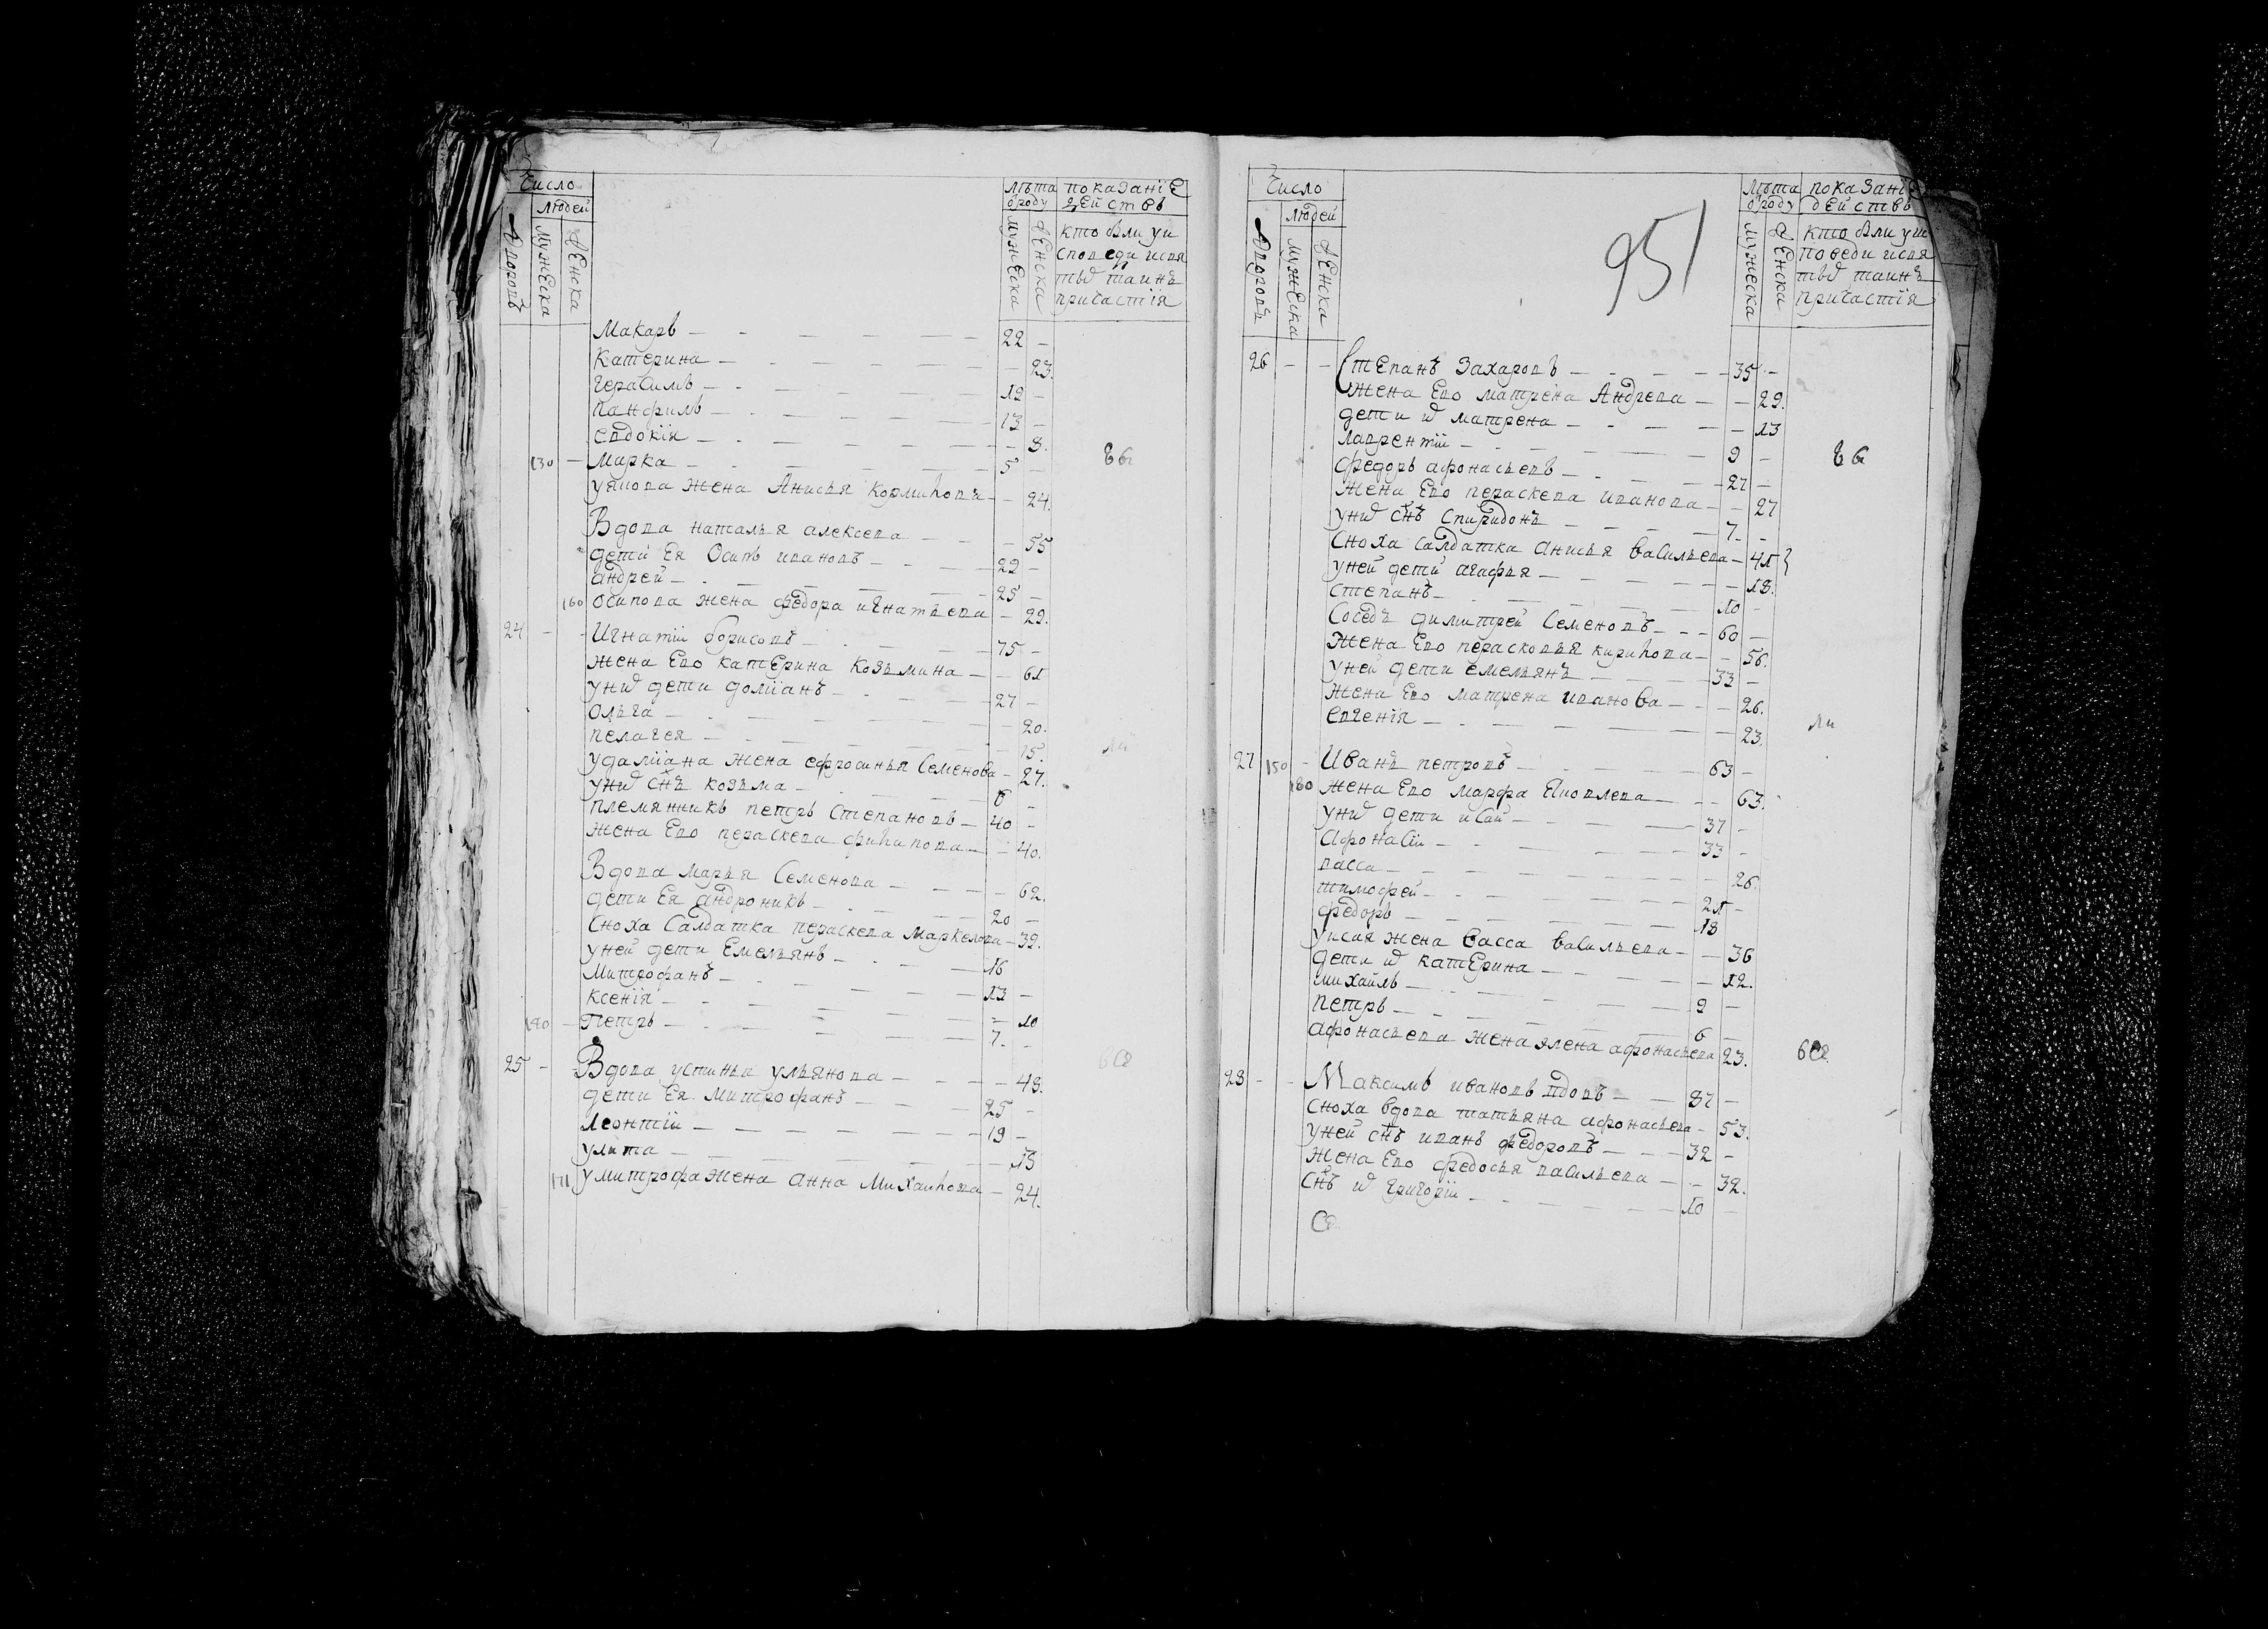 Число
людей
Дворовъ
мужеска
женска
лѣта
ѿроду
мужеска
женска
показанїе
действъ
кто былъ уи
споведи исвя
тыѯ таинъ
причастїя
Макаръ — 22 —
Катерина — — 23.
Герасимъ — 19 —
панфилъ — 13 —
евдокїя — — 8.
130 — Марка — 5 —
уякова жена Анисья Кормилова — — 24.
Вдова наталья алексева — — 55
дети Ея Осипъ ивановъ — 29 —
андрей — 25 —
160 осипова жена федора игнатьева — 29.
24 — — Игнатїй борисовъ — 75 —
жена Ево катерина козьмина — — 61
унѡ дети домїанъ — 27 —
ольга — — 20.
пелагея — — 15.
удамїана жена ефросинья Семенова — 27.
унѡ снъ козьма — 6 —
племянникъ петръ Степановъ — 40 —
жена Ево пераскева филипова — — 40.
Вдова Марья Семенова — — 62.
дети Ея андроникъ — 20 —
сноха Салдатка пераскева Маркелова — 39.
уней дети Емельянъ — 16
Митрофанъ — 13 —
ксенїя — — 10
140 — Петръ — 7. —
25 — — Вдова устинья ульянова — — 48.
дети Ея Митрофанъ — 25 —
Леонтїй — 19 —
улита — — 15
171 умитрофа жена анна Михаилова — 24.
951
Число
людей
Дворовъ
мужеска
женска
лѣта
ѿроду
мужеска
женска
показанїе
действъ
кто былъ уис
поведи исвя
тыѯ таинъ
причастїя
26 — — Степанъ Захаровъ — 35 —
жена Ево матрена Андрева — — 29.
дети ѿ матрена — — 13
лаврентїй — 9 —
федоръ афонасьевъ — 27 —
жена Ево пераскева иванова — — 27
унѡ снъ спиридонъ — 7. —
сноха салдатка анисья васильева — 41
уней дети агафья — — 18.
степанъ — 10 —
соседъ димитрей Семеновъ — 60 —
жена Ево парасковья кирилова — — 56.
уней дети емельянъ — 33 —
жена Ево матрена иванова — — 26.
евгенїя — — 23.
27 150 — Иванъ петровъ — 63 —
180 жена Ево марфа Яковлева — — 63.
унѡ дети исай — 37 —
афонасїй — 33 —
васса — — 26.
тимофей — 21 —
федоръ — 18
уисая жена васса васильева — — 36
дети ѿ катерина — — 12.
михайлъ — 9 —
петръ — 6 —
афонасьева жена ялена афонасьева 23.
28 — — Максимъ ивановъ вдовъ — 87 —
сноха вдова татьяна афонасьева — 53.
уней снъ иванъ федоровъ — 32 —
жена Ево федосья васильева — — 32.
снъ ѿ григорїй — 10 —